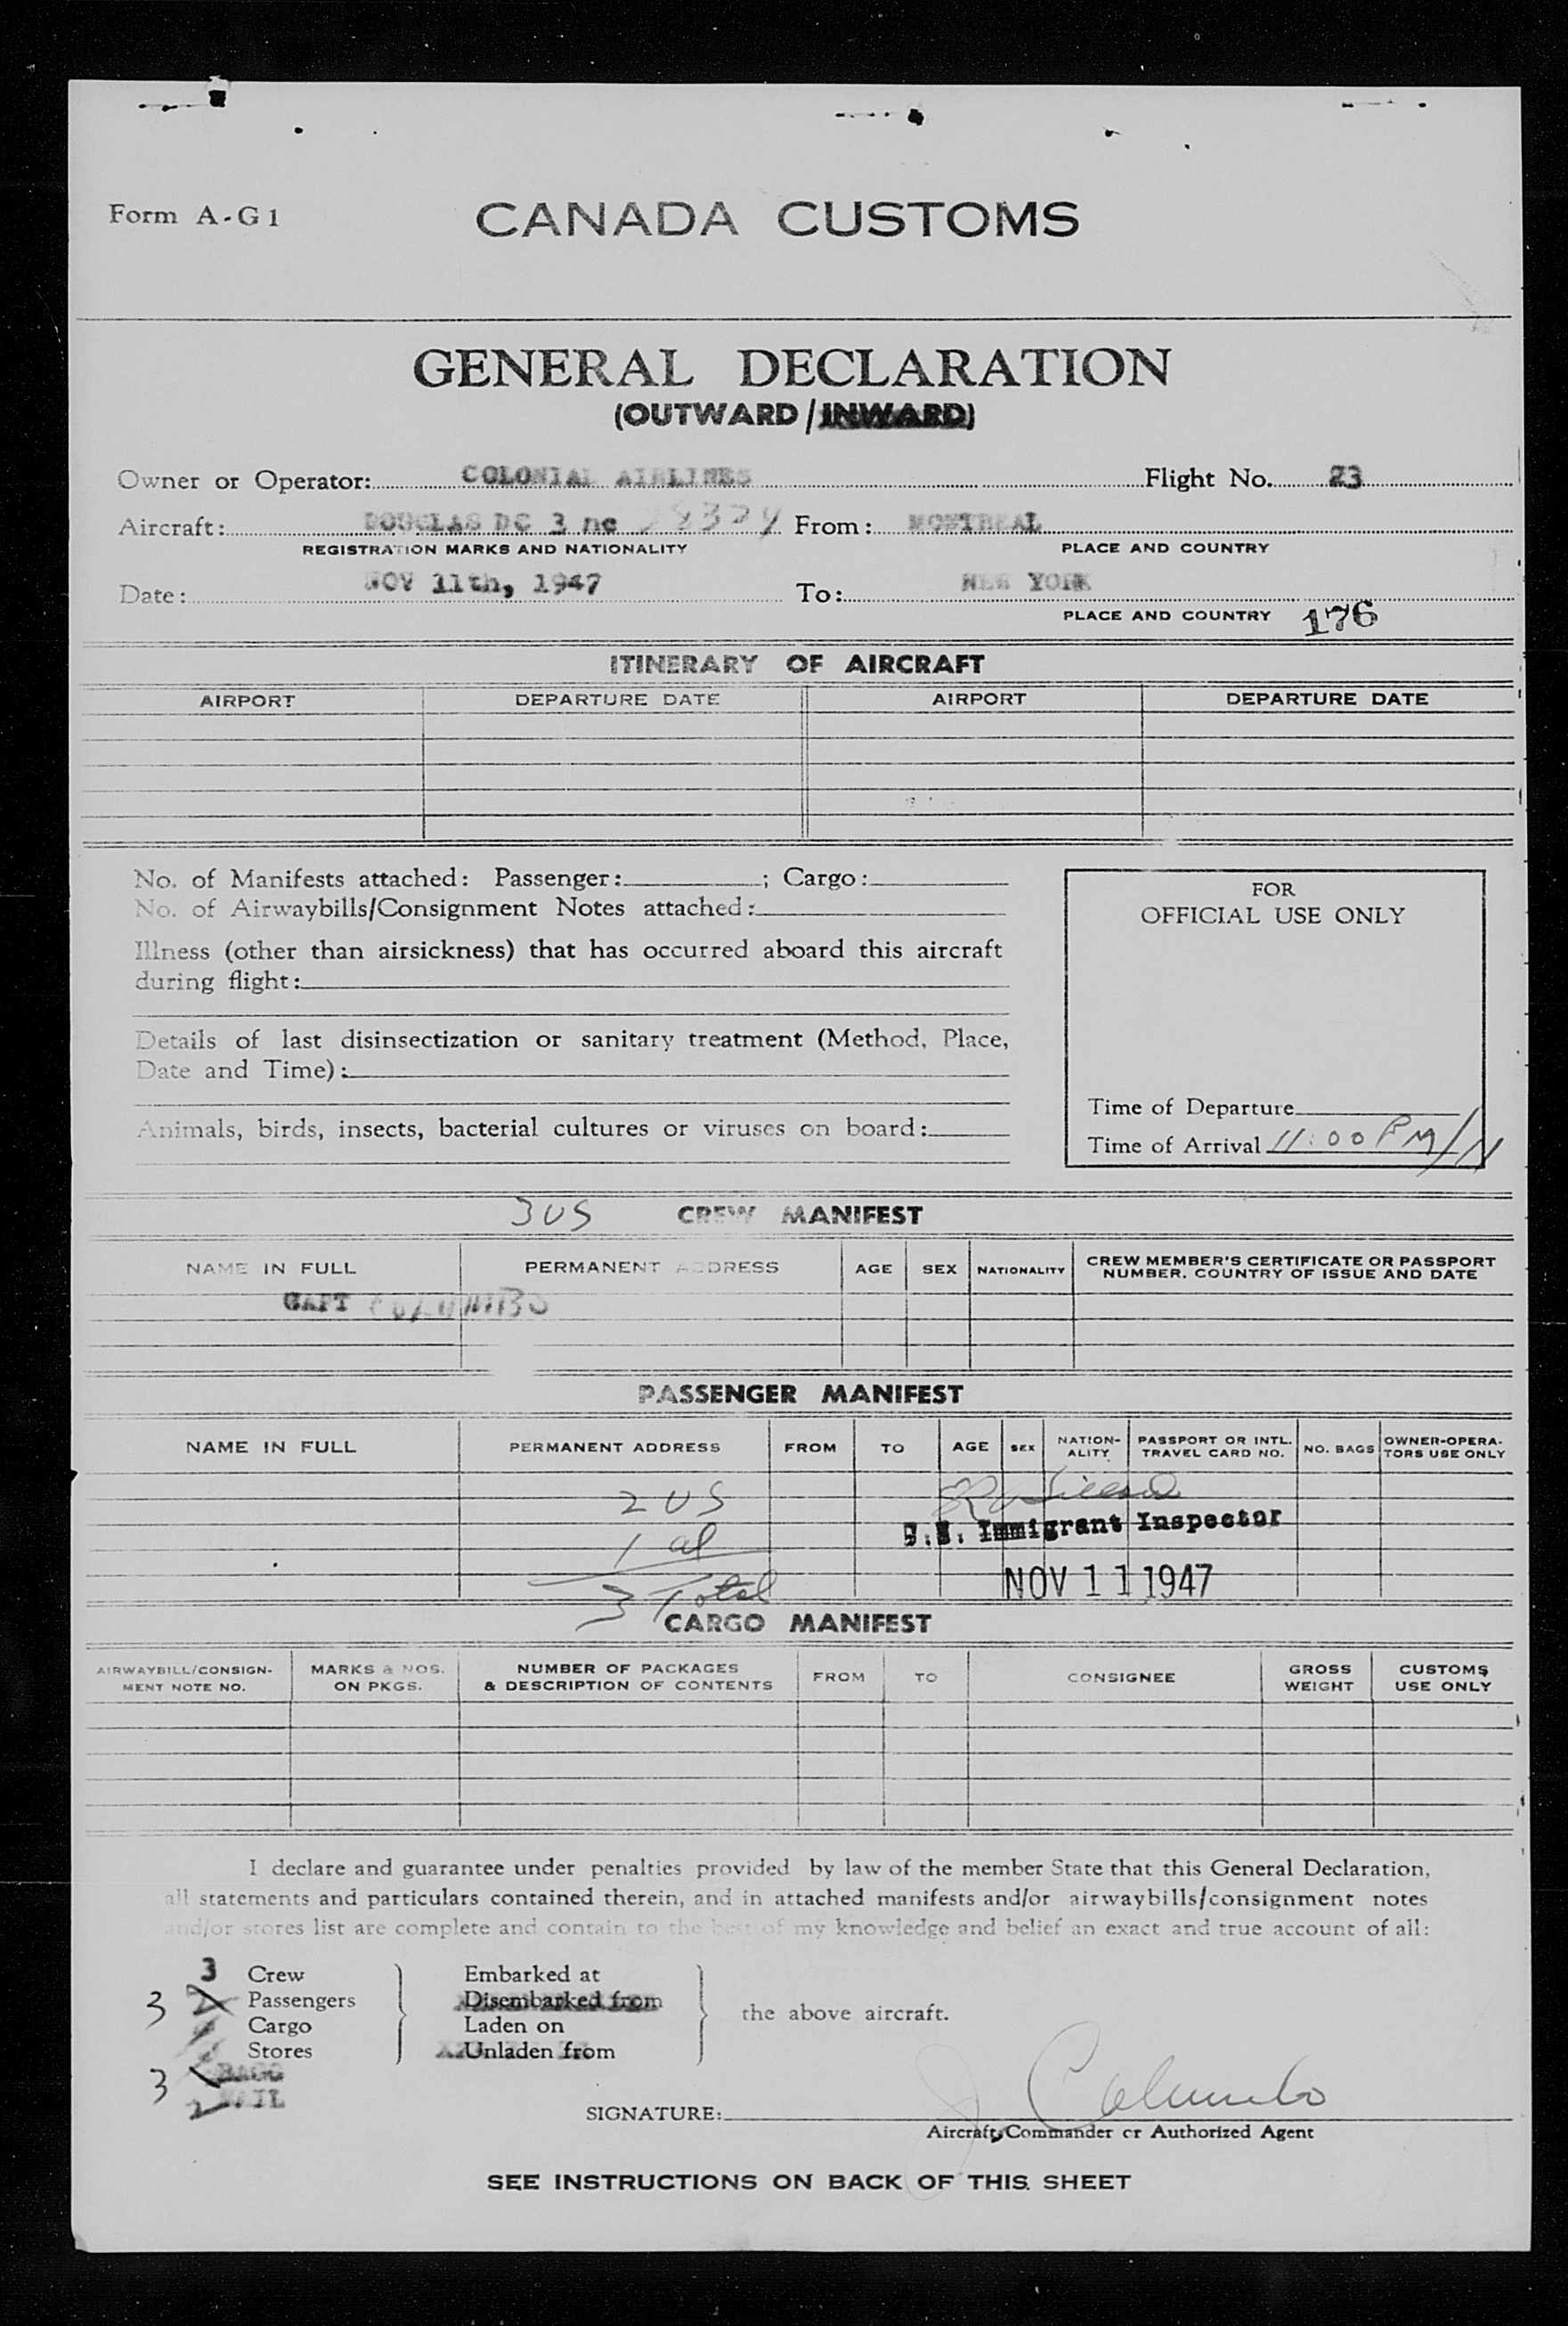 Form A-G1
CANADA CUSTOMS
GENERAL DECLARATION
(OUTWARD/INWARD)
Owner or Operator: COLONIAL AIRLINES Flight No. 23
Aircraft: DOUGLAS DC 3 nc From: MONTREAL
REGISTRATION MARKS AND NATIONALITY PLACE AND COUNTRY
Date: NOV 11th, 1947 To: NEW YORK
PLACE AND COUNTRY 176
ITINERARY OF AIRCRAFT
AIRPORT DEPARTURE DATE AIRPORT DEPARTURE DATE
No. of Manifests attached: Passenger: ; Cargo:
No. of Airwaybills/Consignment Notes attached:
Illness (other than airsickness) that has occurred aboard this aircraft
during flight:
Details of last disinsectization or sanitary treatment (Method, Place,
Date and Time):
Animals, birds, insects, bacterial cultures or viruses on board:
FOR
OFFICIAL USE ONLY
Time of Departure
Time of Arrival 11:00 PM
3 US CREW MANIFEST
NAME IN FULL PERMANENT ADDRESS AGE SEX NATIONALITY CREW MEMBER'S CERTIFICATE OR PASSPORT
NUMBER, COUNTRY OF ISSUE AND DATE
CAPT COLUMBO
PASSENGER MANIFEST
NAME IN FULL PERMANENT ADDRESS FROM TO AGE SEX NATION-
ALITY PASSPORT OR INTL.
TRAVEL CARD NO. NO. BAGS OWNER-OPERA-
TORS USE ONLY
2 US
1 al
3 Total
U.S. Immigrant Inspector
NOV 11 1947
CARGO MANIFEST
AIRWAYBILL/CONSIGN-
MENT NOTE NO. MARKS & NOS.
ON PKGS. NUMBER OF PACKAGES
& DESCRIPTION OF CONTENTS FROM TO CONSIGNEE GROSS
WEIGHT CUSTOMS
USE ONLY
I declare and guarantee under penalties provided by law of the member State that this General Declaration,
all statements and particulars contained therein, and in attached manifests and/or airwaybills/consignment notes
and/or stores list are complete and contain to the best of my knowledge and belief an exact and true account of all:
3 Crew Embarked at
3 2 Passengers Disembarked from
Cargo Laden on
Stores Unladen from
the above aircraft.
3 BAGG
2 MAIL
SIGNATURE: J Columbo
Aircraft Commander or Authorized Agent
SEE INSTRUCTIONS ON BACK OF THIS SHEET